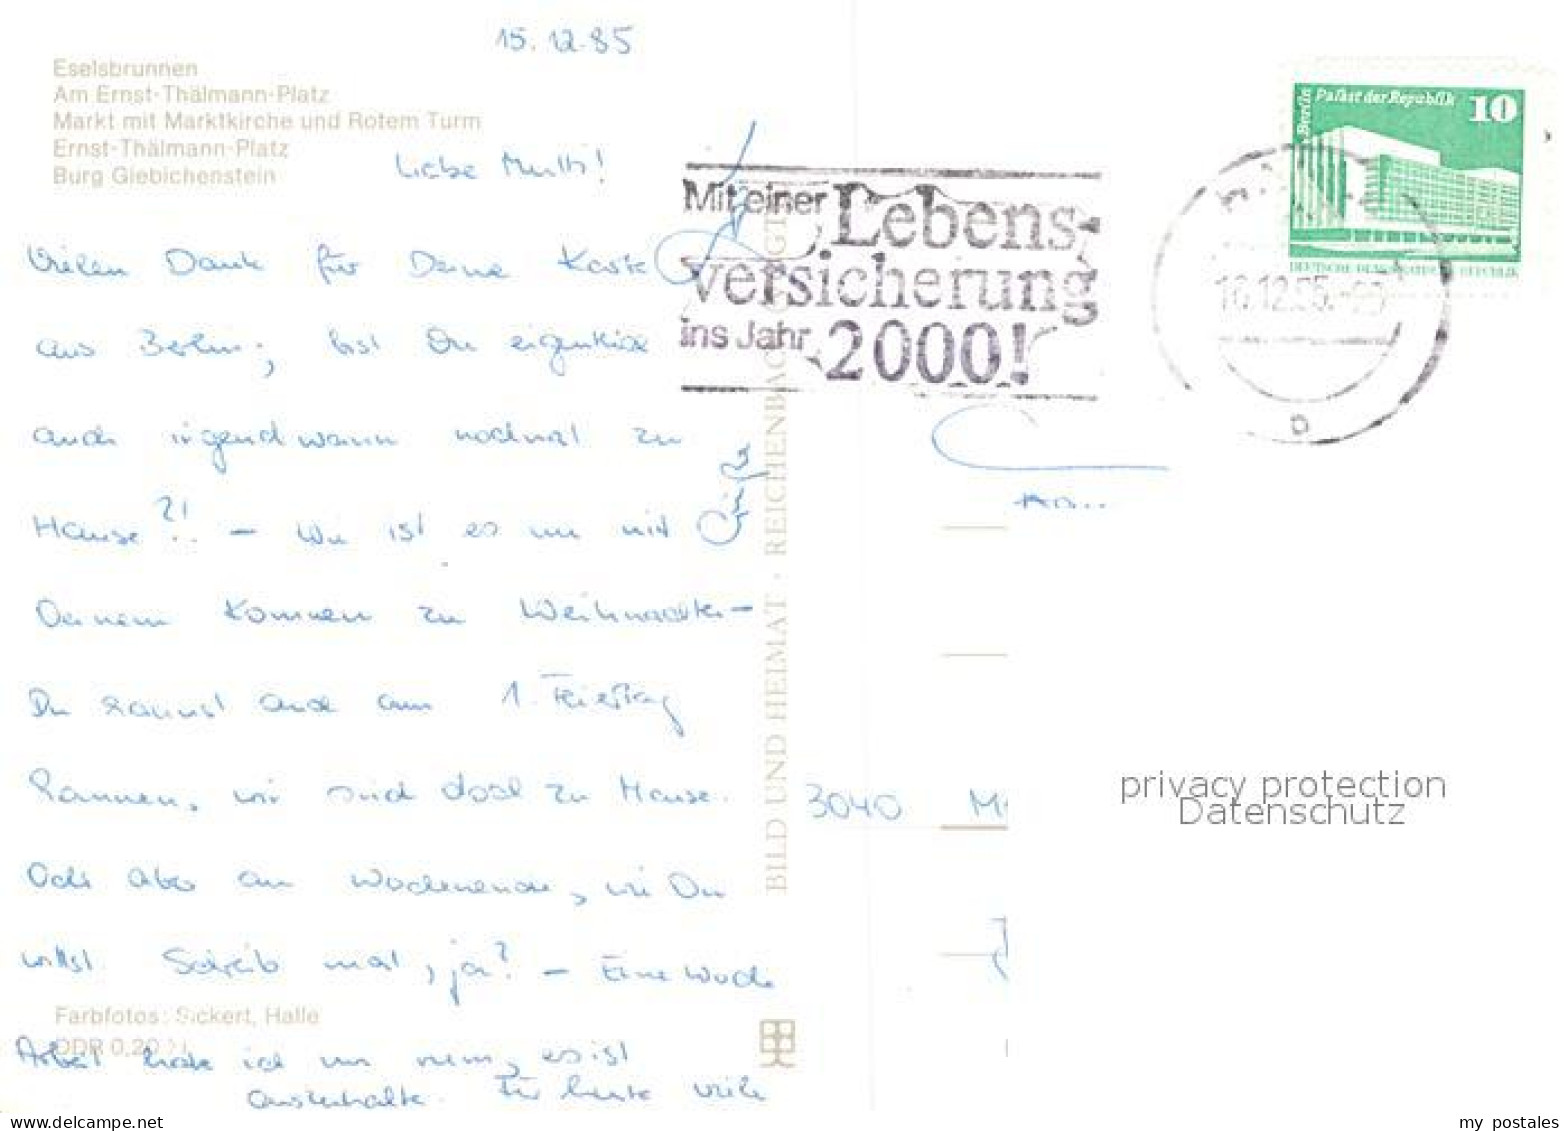 15.12.85
Eselsbrunnen
Am Ernst-Thälmann-Platz
Markt mit Marktkirche und Rotem Turm
Ernst-Thälmann-Platz
Burg Giebichenstein
Liebe Mutti!
Vielen Dank für Deine Karte
aus Berlin; bist Du eigentlich
auch irgendwann nochmal zu
Hause?! – Wie ist es nun mit
Deinem Kommen zu Weihnachten –
Du kannst auch am 1. Feiertag
kommen, wir sind doch zu Hause.
Oder aber am Wochenende, wie Du
willst. Schreib mal, ja? – Eine Woche
Arbeit habe ich nun rum, es ist
auszuhalten. Für heute viele
Farbfotos: Sickert, Halle
DDR 0,20
BILD UND HEIMAT · REICHENBACH
Mit einer Lebens-
versicherung
ins Jahr 2000!
Berlin Palast der Republik 10
DEUTSCHE DEMOKRATISCHE REPUBLIK
16.12.85
3040 M
privacy protection
Datenschutz
my postales